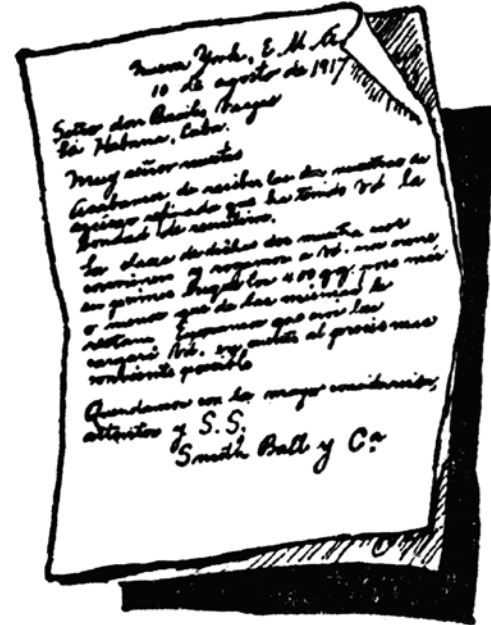 Nueva York, E. U. A.
10 de agosto de 1917
Señor don Basilio Vargas
La Habana, Cuba.
Muy señor nuestro
Acabamos de recibir las dos muestras de
azúcar refinado que ha tenido Vd. la
bondad de remitirnos.
La clase de dichas dos muestra nos
convienen y rogamos a Vd. nos envíe
en primer buque los 400 qq. poco más
o menos que de las mismas le
restan. Esperamos que nos las
cargará Vd. en cuenta al precio más
conveniente posible
Quedamos con la mayor consideración,
atentos y S. S.
Smith Ball y Cª